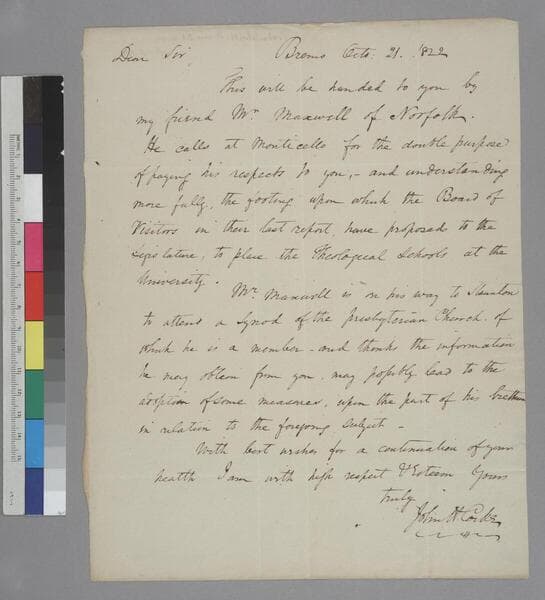 Dear Sir, Bremo Octo: 21. 1822
This will be handed to you by
my friend Mr. Maxwell of Norfolk.
He calls at Monticello for the double purpose
of paying his respects to you,- and understanding
more fully, the footing upon which the Board of
Visitors in their last report, have proposed to the
Legislature, to place the Theological Schools at the
University.
Mr. Maxwell is on his way to Staunton
to attend a Synod of the Presbyterian Church of
which he is a member - and thinks the information
he may obtain from you, may possibly lead to the
adoption of some measures, upon the part of his brethren
in relation to the foregoing subject -
With best wishes for a continuation of your
health I am with high respect & Esteem Yours
truly
John H Cocke